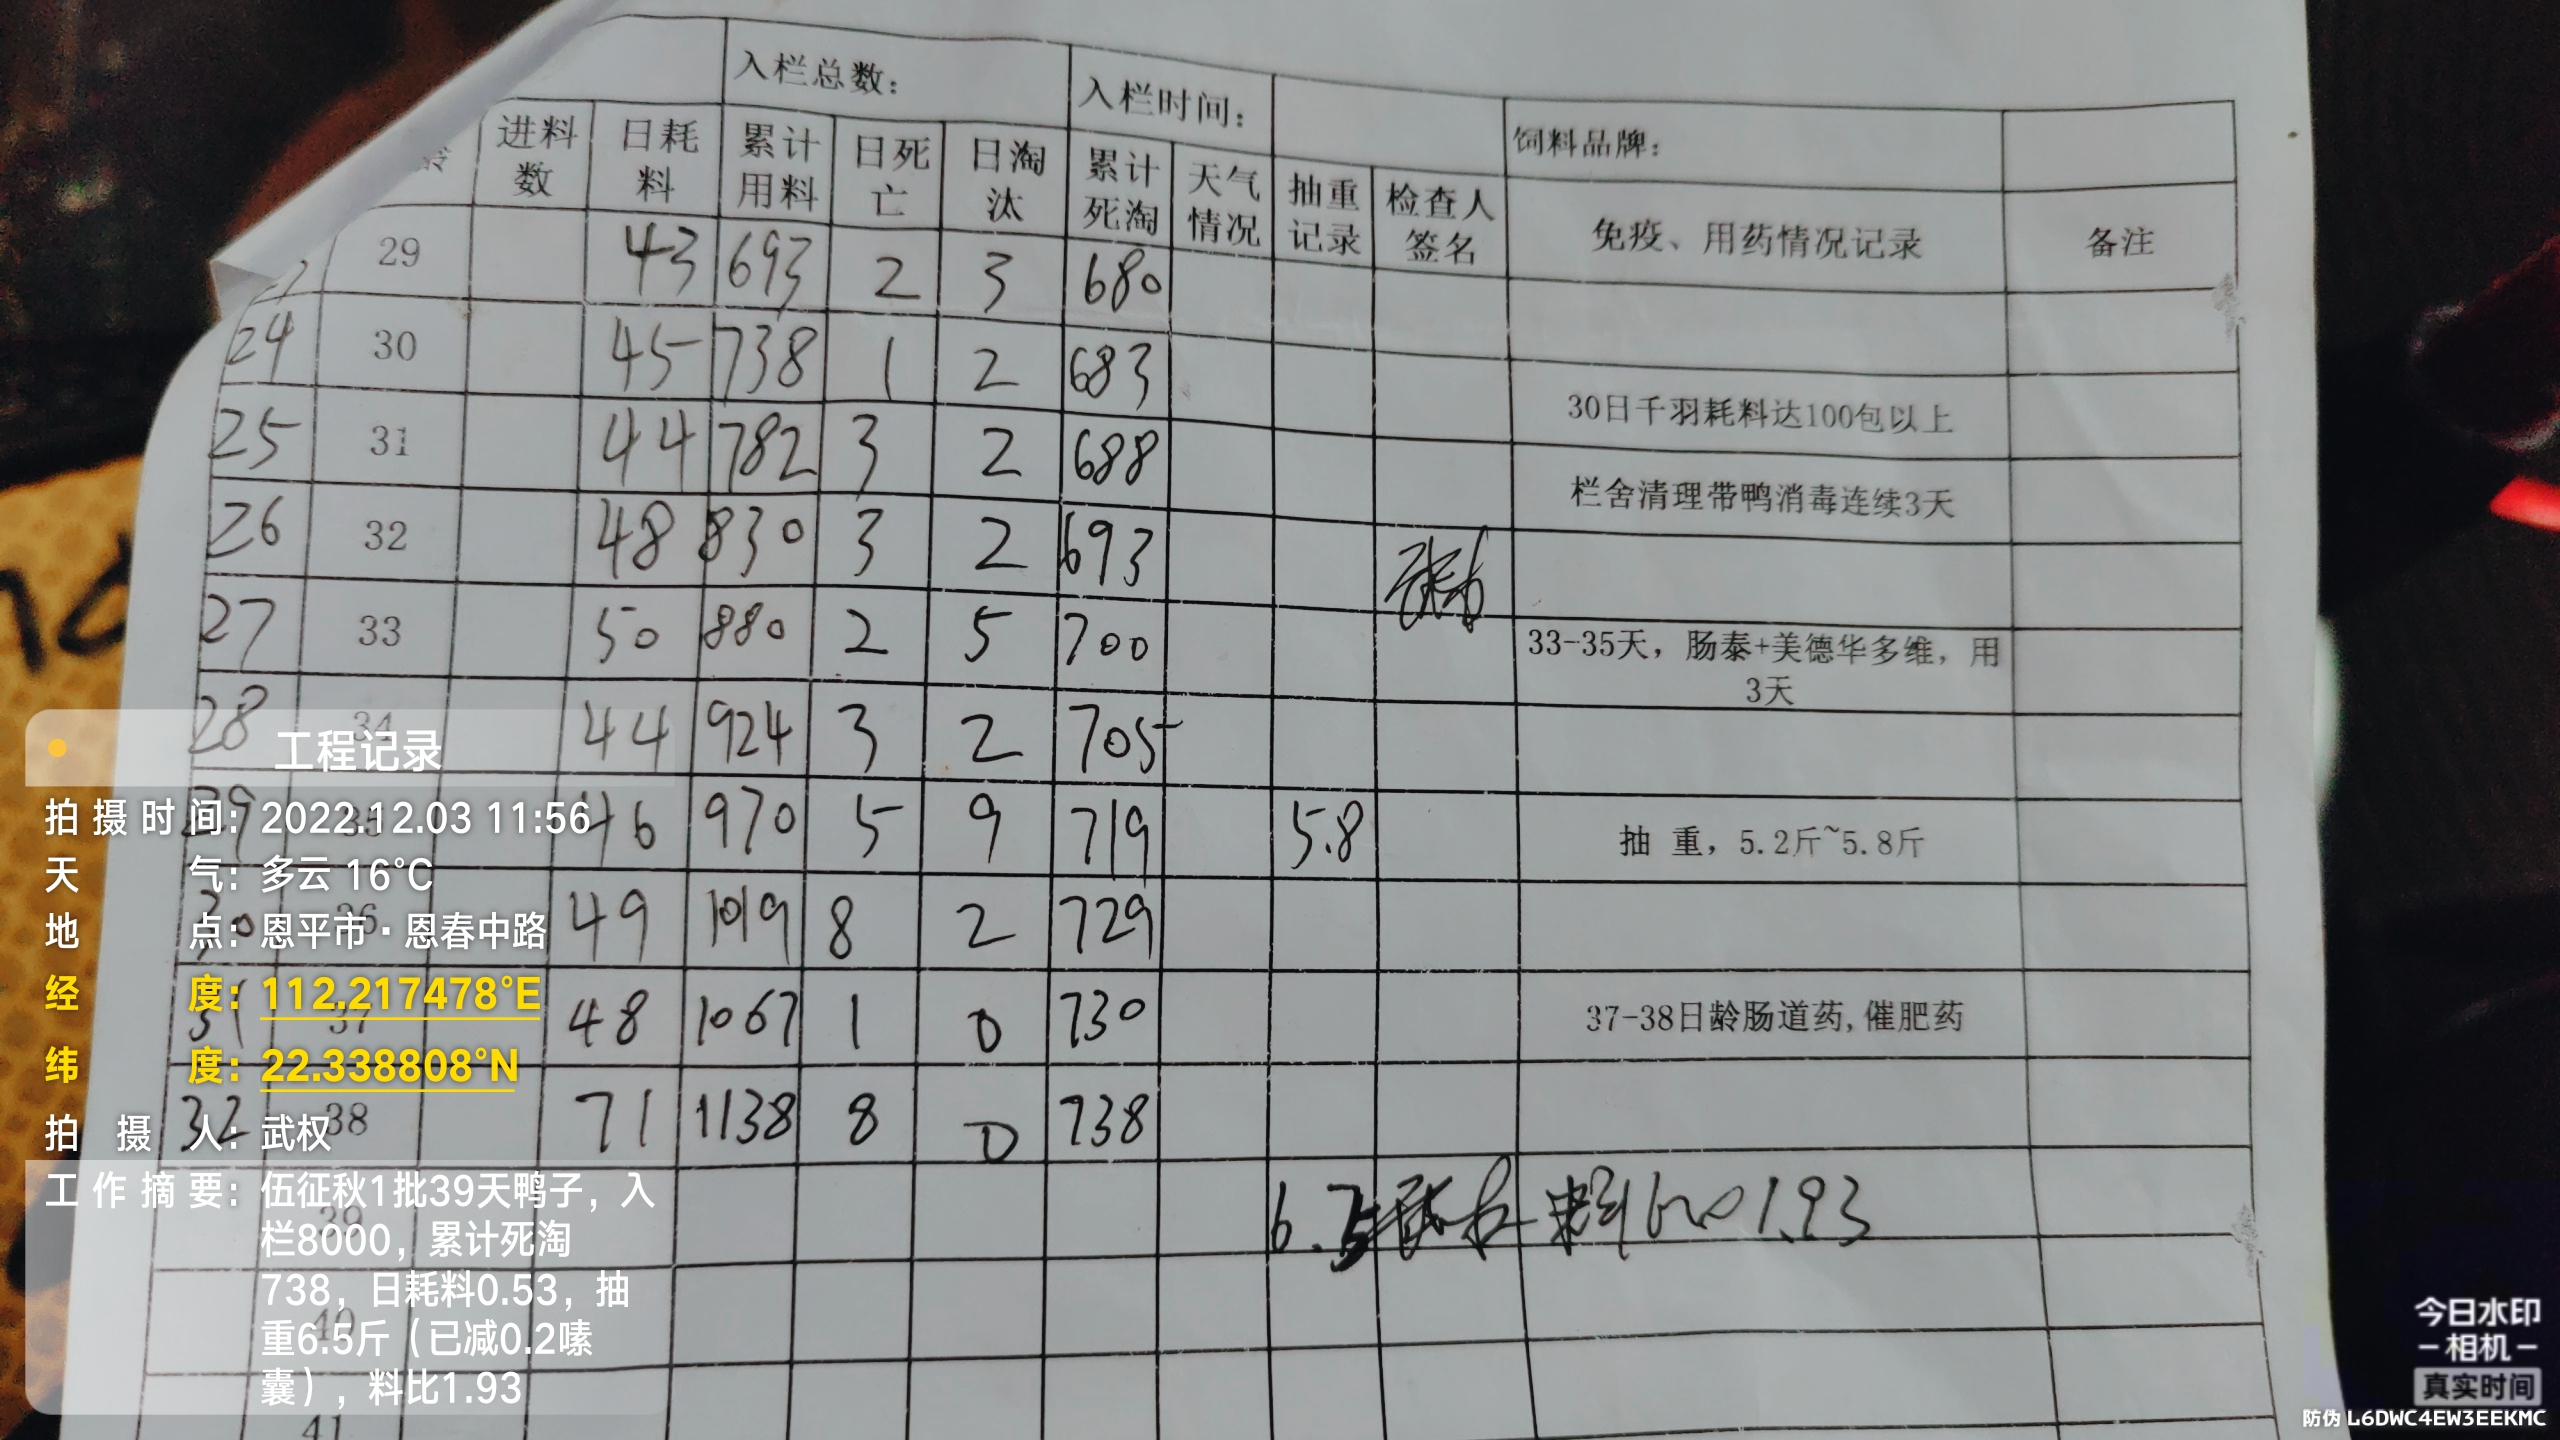 入栏总数: 入栏时间: 饲料品牌:
龄 进料数 日耗料 累计用料 日死亡 日淘汰 累计死淘 天气情况 抽重记录 检查人签名 免疫、用药情况记录 备注
29 43 693 2 3 680
24 30 45 738 1 2 683 30日千羽耗料达100包以上
25 31 44 782 3 2 688 栏舍清理带鸭消毒连续3天
26 32 48 830 3 2 693
27 33 50 880 2 5 700 33-35天，肠泰+美德华多维，用
3天
28 34 44 924 3 2 705
29 35 46 970 5 9 719 5.8 抽 重，5.2斤~5.8斤
30 36 49 1019 8 2 729
31 37 48 1067 1 0 730 37-38日龄肠道药,催肥药
32 38 71 1138 8 0 738
39 6. 料 1.93
40
41
工程记录
拍摄时间: 2022.12.03 11:56
天气: 多云 16°C
地点: 恩平市·恩春中路
经度: 112.217478°E
纬度: 22.338808°N
拍摄人: 武权
工作摘要: 伍征秋1批39天鸭子，入
栏8000，累计死淘
738，日耗料0.53，抽
重6.5斤（已减0.2嗉
囊），料比1.93
今日水印
-相机-
真实时间
防伪 L6DWC4EW3EEKMC